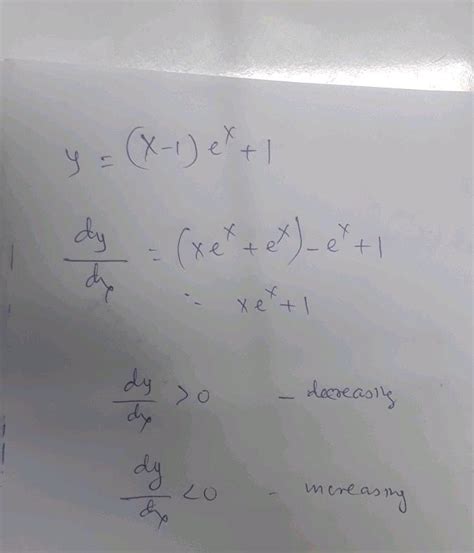 y = (x-1) eˣ + 1
dy/dx = (xeˣ + eˣ) - eˣ + 1
= xeˣ + 1
dy/dx > 0 - decreasing
dy/dx < 0 - increasing